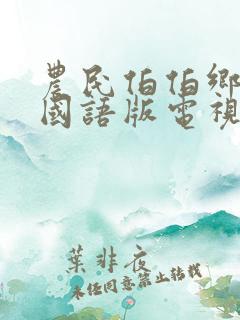 農民伯伯鄉
國語版電視
葉非夜
未經同意禁止轉載